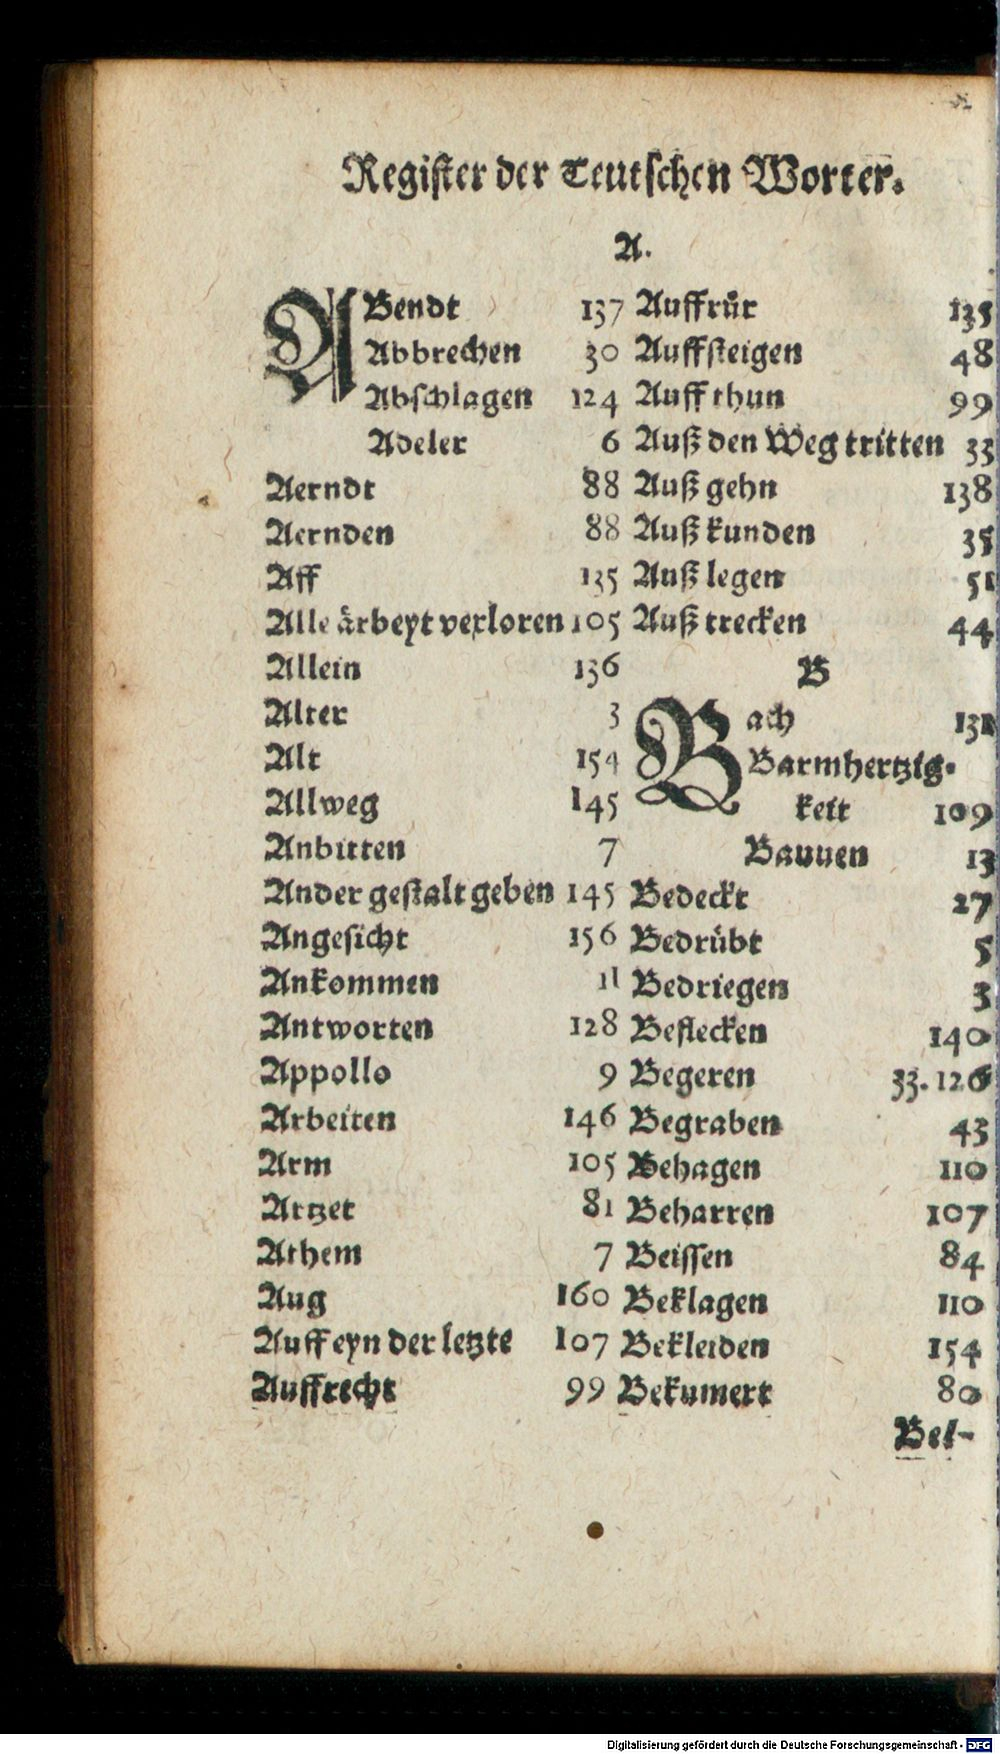 Register der Teutschen Worter.
A.
ABendt 137
Abbrechen 30
Abschlagen 124
Adeler 6
Aerndt 88
Aernden 88
Aff 135
Alle ärbeyt verloren 105
Allein 136
Alter 3
Alt 154
Allweg 145
Anbitten 7
Ander gestalt geben 145
Angesicht 156
Ankommen 11
Antworten 128
Appollo 9
Arbeiten 146
Arm 105
Artzet 81
Athem 7
Aug 160
Auff eyn der letzte 107
Auffrecht 99
Auffrůr 135
Auffsteigen 48
Auff thun 99
Auß den Weg tritten 33
Auß gehn 138
Auß kunden 35
Auß legen 51
Auß trecken 44
B
Bach
Barmhertzig-
keit 109
Bauuen 13
Bedeckt 27
Bedrübt 5
Bedriegen 3
Beflecken 140
Begeren 33. 126
Begraben 43
Behagen 110
Beharren 107
Beissen 84
Beklagen 110
Bekleiden 154
Bekumert 80
Bel-
Digitalisierung gefördert durch die Deutsche Forschungsgemeinschaft - DFG